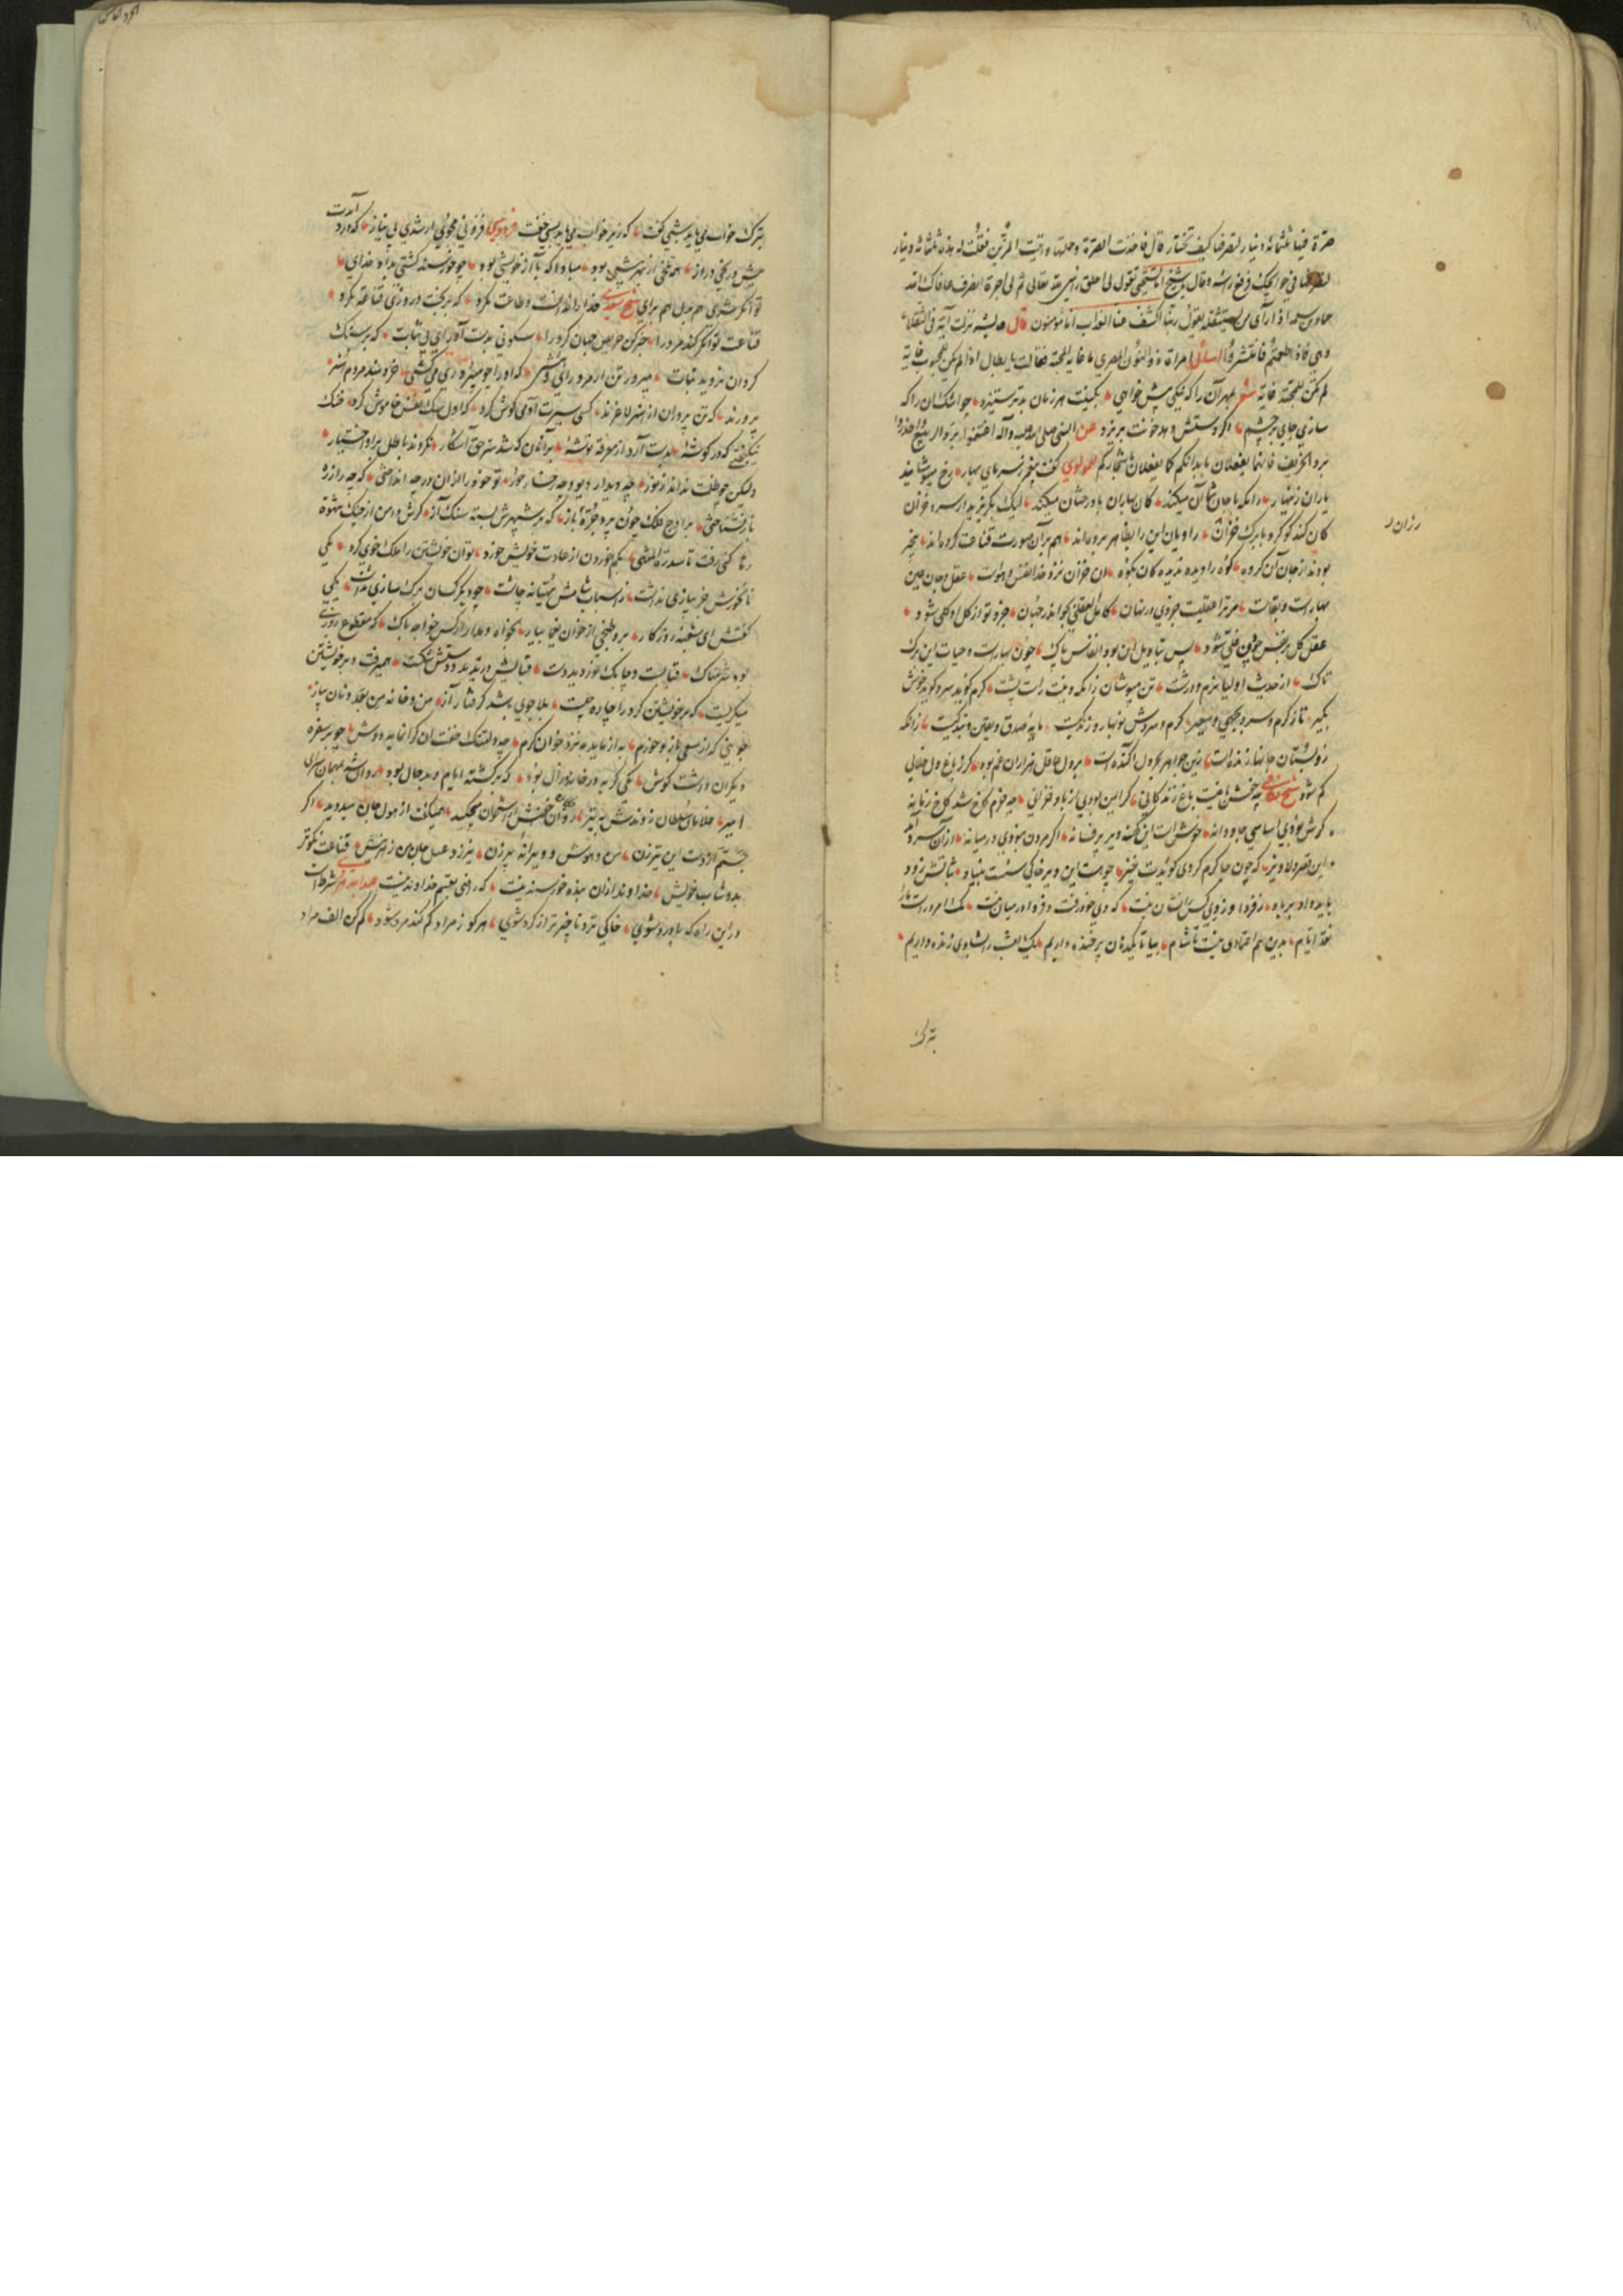 صرة فیها ثلثمائة دینار لتصرفها کیف تختار قال فاخذت الصرة وجلتها واتیت فقلت له هذه ثلثمائة دینار
فی حوائجک فرفع راسه وقال یا شیخ اما تستحی تقول لی
اذا رآی من یستثقله یقول ربنا اکشف عنا العذاب انا مؤمنون قال عایشه نزلت آیة فی الثقلاء
وهی فاذا طعمتم فانتشروا سأل امراة ذو النون المصری ما غایة المحبة فقالت یا بطال اذا لم یکن للمحبوب غایة
لم یکن للمحبة غایة شعر مهر آن را که نیکی پیش خواهی بکینت هر زمان بدتر ستیزد چو اشک آن را که
سازی جای بر چشم اگر دستش دهد خونت بریزد عن النبی صلی الله علیه وآله اغتنموا برد الربیع واحذروا
برد الخریف فانهما یفعلان بابدانکم کما یفعلان باشجارکم للمولوی گفت پیغمبر ز سرمای بهار رخ مپوشانید
یاران زینهار زانکه با جان شما آن میکند کان بهاران با درختان میکند لیک بگریزید از سرد خزان
کان کند کو کرد با برگ خزان راویان این را بظاهر برده اند هم بر آن صورت قناعت کرده اند بیخبر
بودند از جان آن گروه کوه را دیده ندیده کان بکوه آن خزان نزد خدا نفس و هواست عقل و جان عین
بهارست و بقاست مر ترا عقلیست جزوی در نهان کامل العقلی بجو اندر جهان جزو تو از کل او کلی شود
عقل کل بر نفس چون غلی شود پس بتاویل این بود انفاس پاک چون بهارست و حیات این برگ
تاک از حدیث اولیا نرم و درشت تن مپوشان زانکه دینت راست پشت گرم گوید سرد گوید خوش
بگیر تا ز گرم و سرد بجهی و سعیر گرم و سردش نوبهار زندگیست مایه صدق و یقین و بندگیست زانکه
زو بستان جانها زنده است زین جواهر بحر دل آکنده است بر دل عاقل هزاران غم بود گر ز باغ دل خلالی
کم شود شیخ نظامی چه خوش باغیست باغ زندگانی گر ایمن بودی از باد خزانی چه خرم کاخ شد کاخ زمانه
گرش بودی اساسی جاودانه خوشست این کهنه دیر پر فسانه اگر مردن نبودی در میانه از آن سرد آمد
این قصر دلاویز که چون جا گرم کردی گویدت خیز چو هست این دیر خاکی سست بنیاد بباد بایدش زود
ز فردا و ز دی کس را نشان نیست که دی خود رفت و فردا در میان نیست یک امروزست ما را
نقد ایام بدین هم اعتمادی نیست تا شام بیا تا یکدهن پر خنده داریم یک امشب را بشادی زنده داریم
رزان
بترک
بترک خواب می باید شبی گفت که زیر خواب می باید بسی خفت فردوسی فزونی مجوی ار شدی بی نیاز که درد آردت
پیش رنج دراز همه تلخی از بهر بیشی بود مبادا که با آز خویشی بود چو خورسند گشتی بداد خدای
توانگر شدی هم بدل هم برای شیخ سعدی خدا را ندانست و طاعت نکرد که بر بخت و روزی قناعت نکرد
قناعت توانگر کند مرد را خبر کن حریص جهان گرد را سکونی بدست آور ای بی ثبات که بر سنگ
گردان نروید نبات مپرور تن ار مرد رای و هشی که او را چو میپروری می کشی خردمند مردم هنر
پرورند که تن پروران از هنر لاغرند کسی سیرت آدمی گوش کرد که اول سگ نفس خاموش کرد خنک
نیکبختی که در گوشه بدست آرد از معرفت توشه بر آنان که شد سر حق آشکار نکردند باطل برو اختیار
ولیکن چو ظلمت نداند ز نور چه دیدار دیو و چه رخسار حور تو خود را از آن در چه انداختی که چه را ز ره
باز نشناختی بر اوج فلک چون پرد جره باز که بر شهپرش بسته سنگ آز گرش دامن از چنگ شهوة
رها کنی رفت تا سدرة المنتهی بکم خوردن از عادت خویش خورد توان خویشتن را ملک خوی کرد یکی
نانخورش جز پیازی نداشت که چو دیگر کسان برگ و سازی نداشت یکی
گفتش ای سغبه روزگار برو طبخی از خوان یغما بیار بخواه و مدار از کس ای خواجه باک که مقطوع روزی
بود شرمناک قبا بست و چابک نوردید دست قبایش دریدند و دستش شکست همیرفت و بر خویشتن
میگریست که مر خویشتن کرده را چاره چیست بلا جوی باشد گرفتار آز من و خانه من بعد و نان و پیاز
جوینی که از سعی بازو خورم به از مایده نزد خوان کرم چه دلتنگ خفت آن فرومایه دوش چو بر سفره
دیگران داشت گوش یکی گربه در خانه زال بود که برگشته ایام و بدحال بود روان شد بمهمان سرای
امیر غلامان سلطان زدندش به تیر روان خونش از استخوان میچکید همیگفت از هول جان میدوید اگر
جستم از دست این تیرزن من و موش و ویرانه پیرزن نیرزد عسل جان من زخم نیش قناعت نکوتر
بدوشاب خویش خداوند از آن بنده خورسند نیست که راضی بقسم خداوند نیست
در این راه که باورد شوی خاکی تر و ناچیزتر از گرد شوی هر کو ز مراد کم کند مرد شود کم کن الف مراد